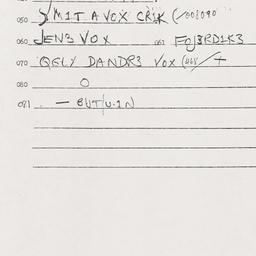 050 YM1T A VOX CR1K (/008090
060 JEN3 VOX 061 FOJ3RD1K3
070 QELY DANDR3 VOX
080 O
081 — BUT/U.1N